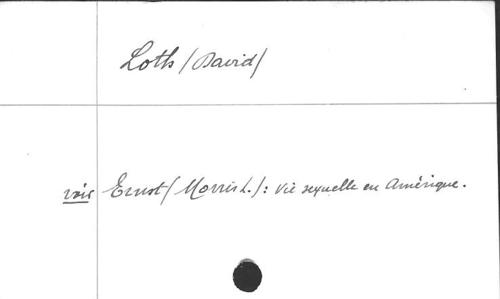 Loth (David)
voir Ernst (Morris L.): Vie sexuelle en Amérique.